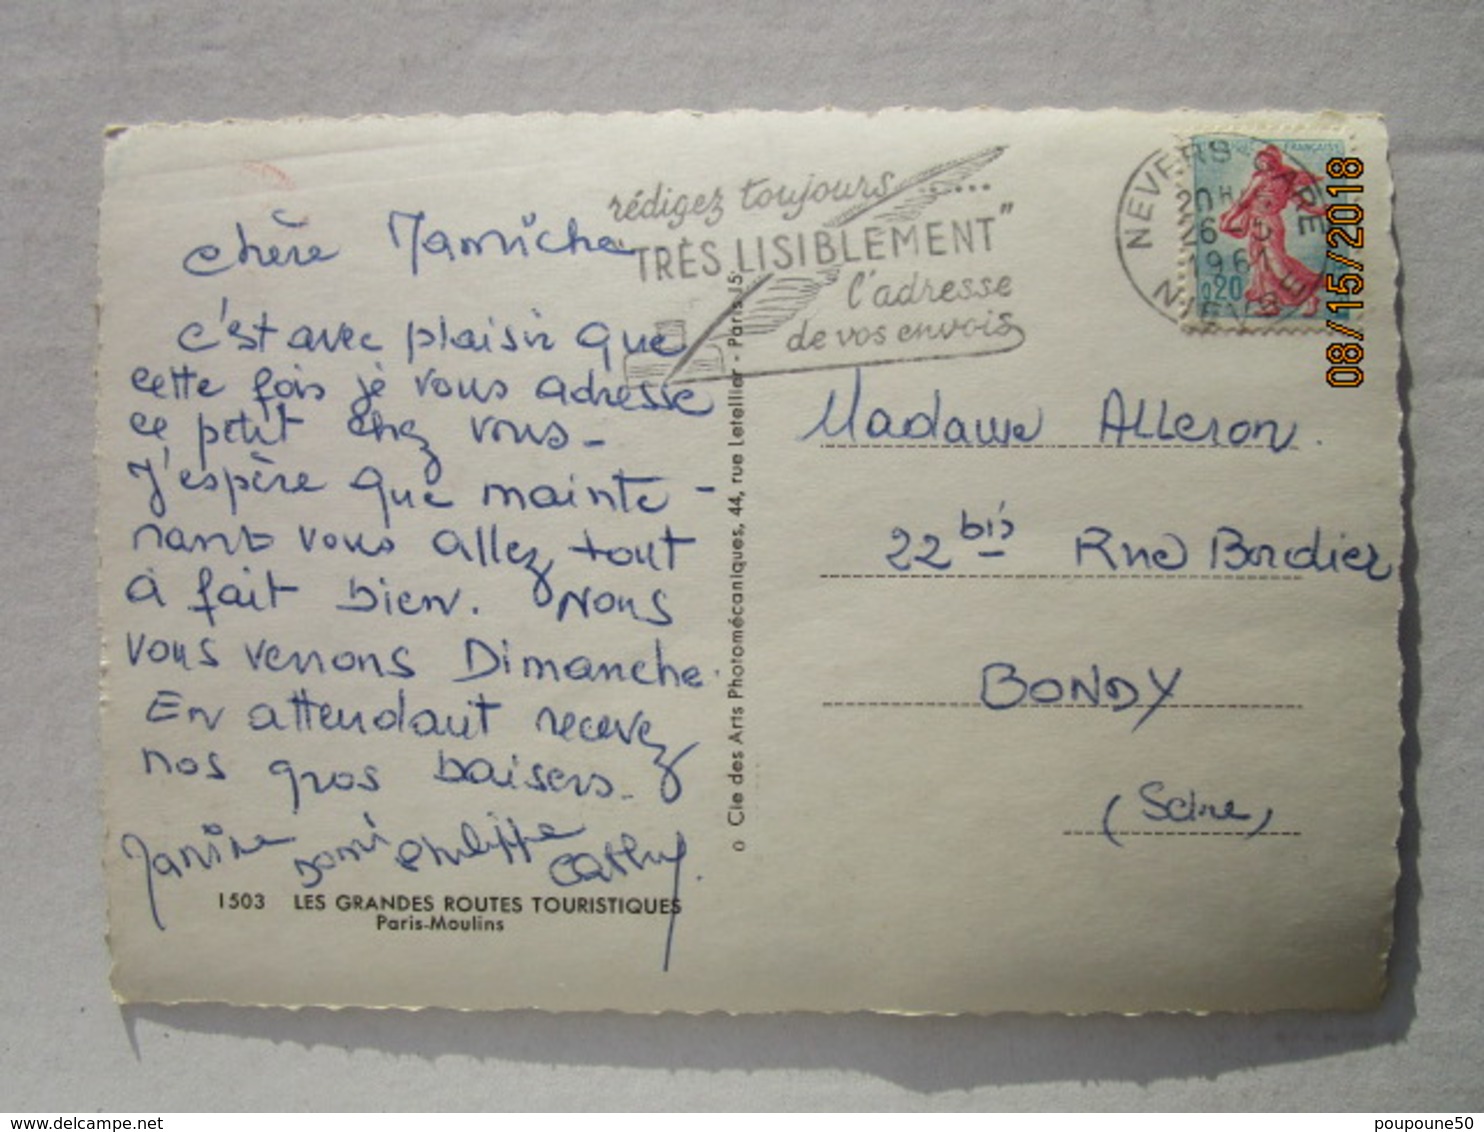 chère Mamiche
c'est avec plaisir que
cette fois je vous adresse
ce petit chez vous -
J'espère que mainte -
nant vous allez tout
à fait bien. Nous
vous verrons Dimanche.
En attendant recevez
nos gros baisers -
Janine Domi Philippe
Cathy.
1503 LES GRANDES ROUTES TOURISTIQUES
Paris-Moulins
Cie des Arts Photomécaniques, 44, rue Letellier - Paris 15
rédigez toujours ......
"TRÈS LISIBLEMENT"
l'adresse
de vos envois
NEVERS GARE
NIEVRE
20H
26-5
1961
FRANÇAISE
0,20
08/15/2018
Madame Alleron.
22 bis Rue Bordier
BONDY
(Seine)
poupoune50